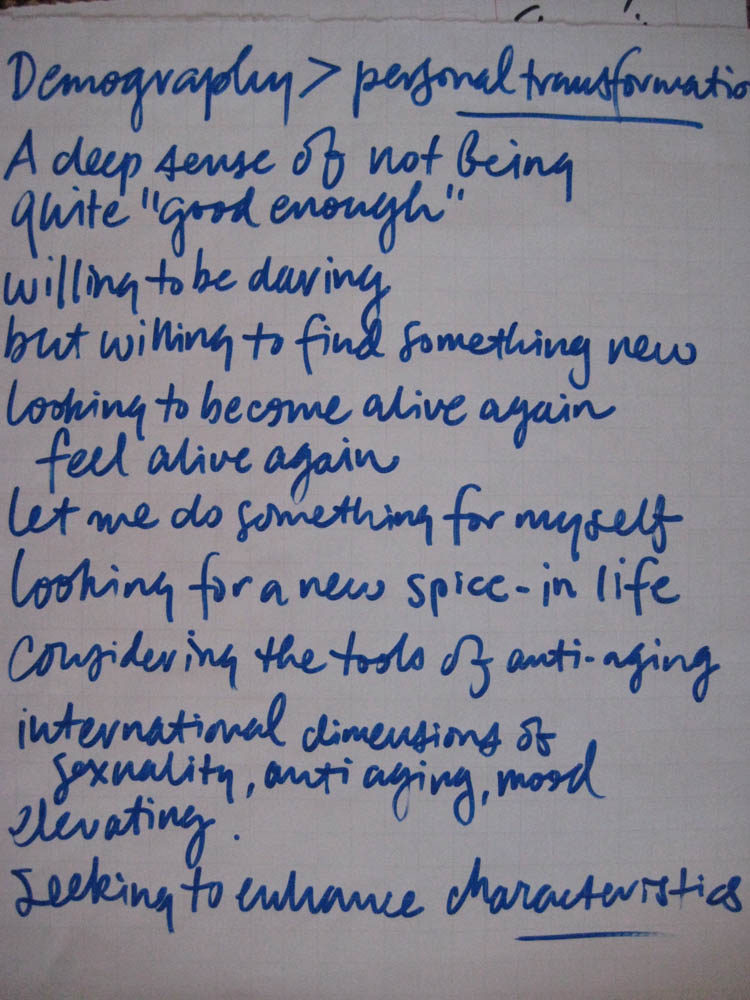 Demography > personal transformatio
A deep sense of not being
quite "good enough"
willing to be daring
but willing to find something new
looking to become alive again
feel alive again
let me do something for myself
looking for a new spice-in life
considering the tools of anti-aging
international dimensions of
sexuality, anti aging, mood
elevating.
seeking to enhance characteristics